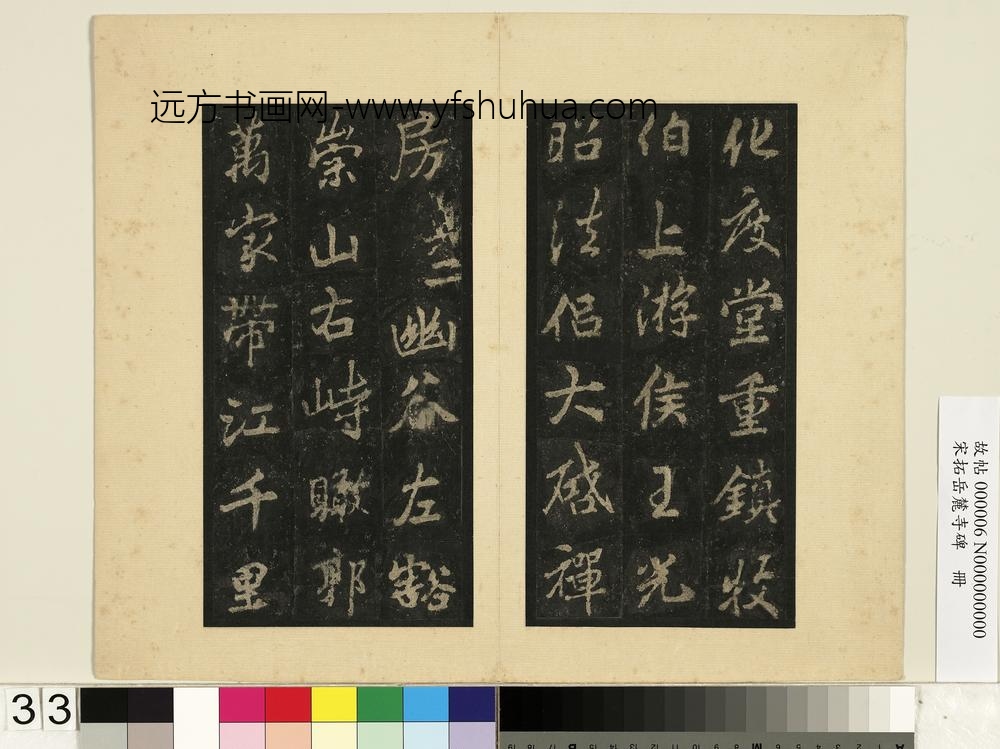 远方书画网-www.yfshuhua.com
化度堂重鎮牧
伯上游侯王光
昭法侶大啓禪
房
幽谷左豁
崇山右峙瞰郭
萬家帶江千里
故帖 000006 N000000000
宋拓岳麓寺碑 冊
33